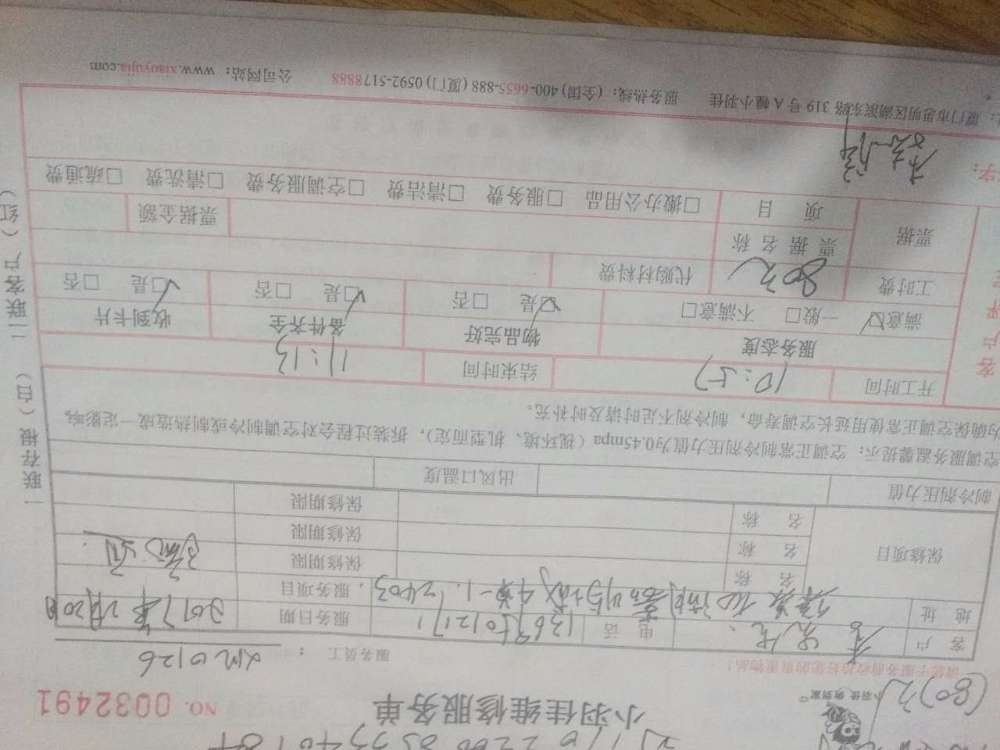 小羽佳维修服务单
NO. 0032491
小羽佳 到家
服务员工： XM0126
客户
电话
服务日期 2017年2月20日
地址
4 1. 2403
服务项目
保修项目
名称
保修期限
名称
保修期限
名称
保修期限
制冷剂压力值
出风口温度
空调服务温馨提示：空调正常制冷剂压力值为0.45mpa（视环境、机型而定），拆装过程会对空调制冷或制热造成一定影响，
为确保空调正常使用延长空调寿命，制冷剂不足时请及时补充。
开工时间 10:57 结束时间 11:13
服务态度 物品完好 备件齐全 收到卡片
满意☑ 一般□ 不满意□ ☑是 □否 ☑是 □否 ☑是 □否
工时费 80元 代购材料费
票据 票据名称 票据金额
项目 □搬办公用品 □服务费 □清洁费 □空调服务费 □清洗费 □疏通费
字：
厦门市思明区湖滨东路 319 号 A 幢小羽佳 服务热线：(全国) 400-6655-888 (厦门) 0592-5178888 公司网站：www.xiaoyujia.com
一联存根（白） 二联客户（红）